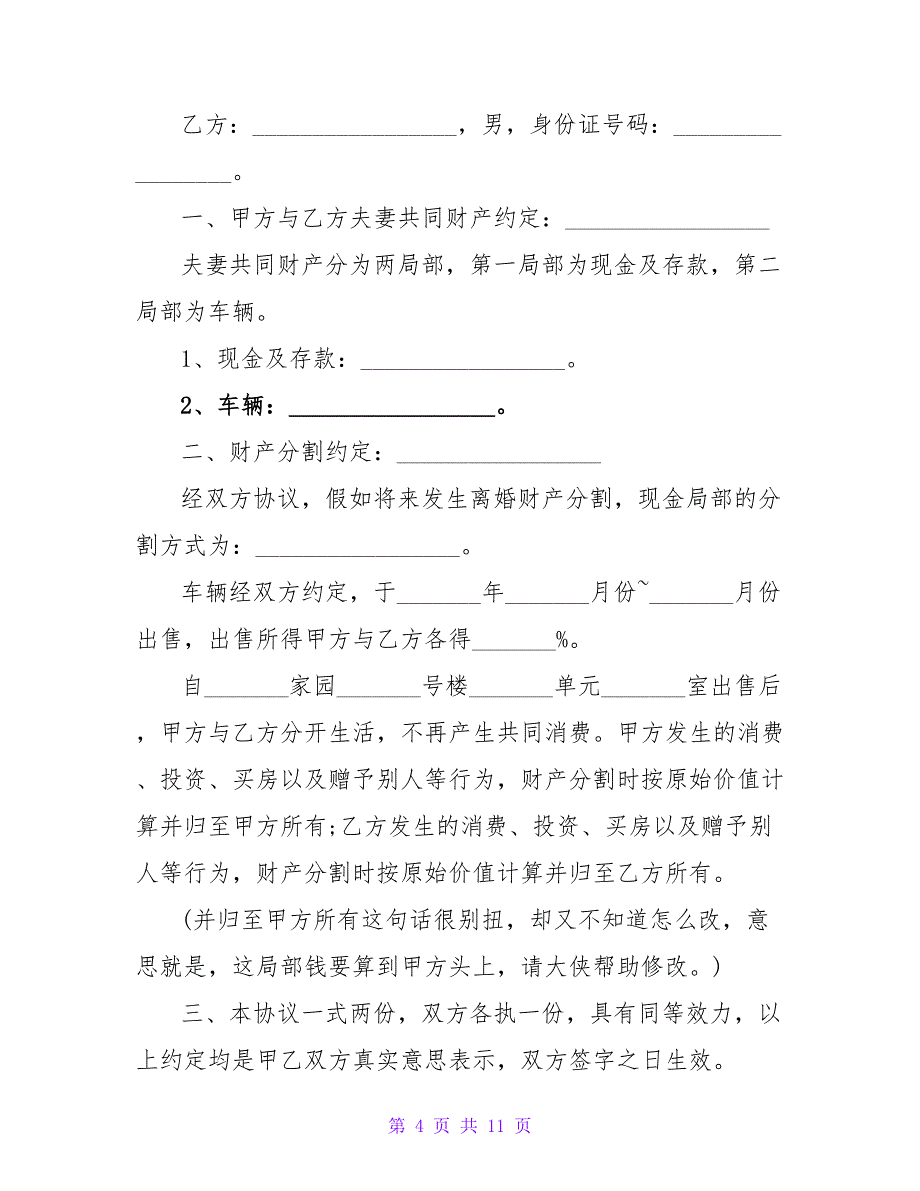 乙方：_________________，男，身份证号码：_________
________。
一、甲方与乙方夫妻共同财产约定：_________________
夫妻共同财产分为两局部，第一局部为现金及存款，第二
局部为车辆。
1、现金及存款：_________________。
2、车辆：_________________。
二、财产分割约定：_________________
经双方协议，假如将来发生离婚财产分割，现金局部的分
割方式为：_________________。
车辆经双方约定，于_______年_______月份~_______月份
出售，出售所得甲方与乙方各得_______%。
自_______家园_______号楼_______单元_______室出售后
，甲方与乙方分开生活，不再产生共同消费。甲方发生的消费
、投资、买房以及赠予别人等行为，财产分割时按原始价值计
算并归至甲方所有;乙方发生的消费、投资、买房以及赠予别
人等行为，财产分割时按原始价值计算并归至乙方所有。
(并归至甲方所有这句话很别扭，却又不知道怎么改，意
思就是，这局部钱要算到甲方头上，请大侠帮助修改。)
三、本协议一式两份，双方各执一份，具有同等效力，以
上约定均是甲乙双方真实意思表示，双方签字之日生效。
第 4 页 共 11 页